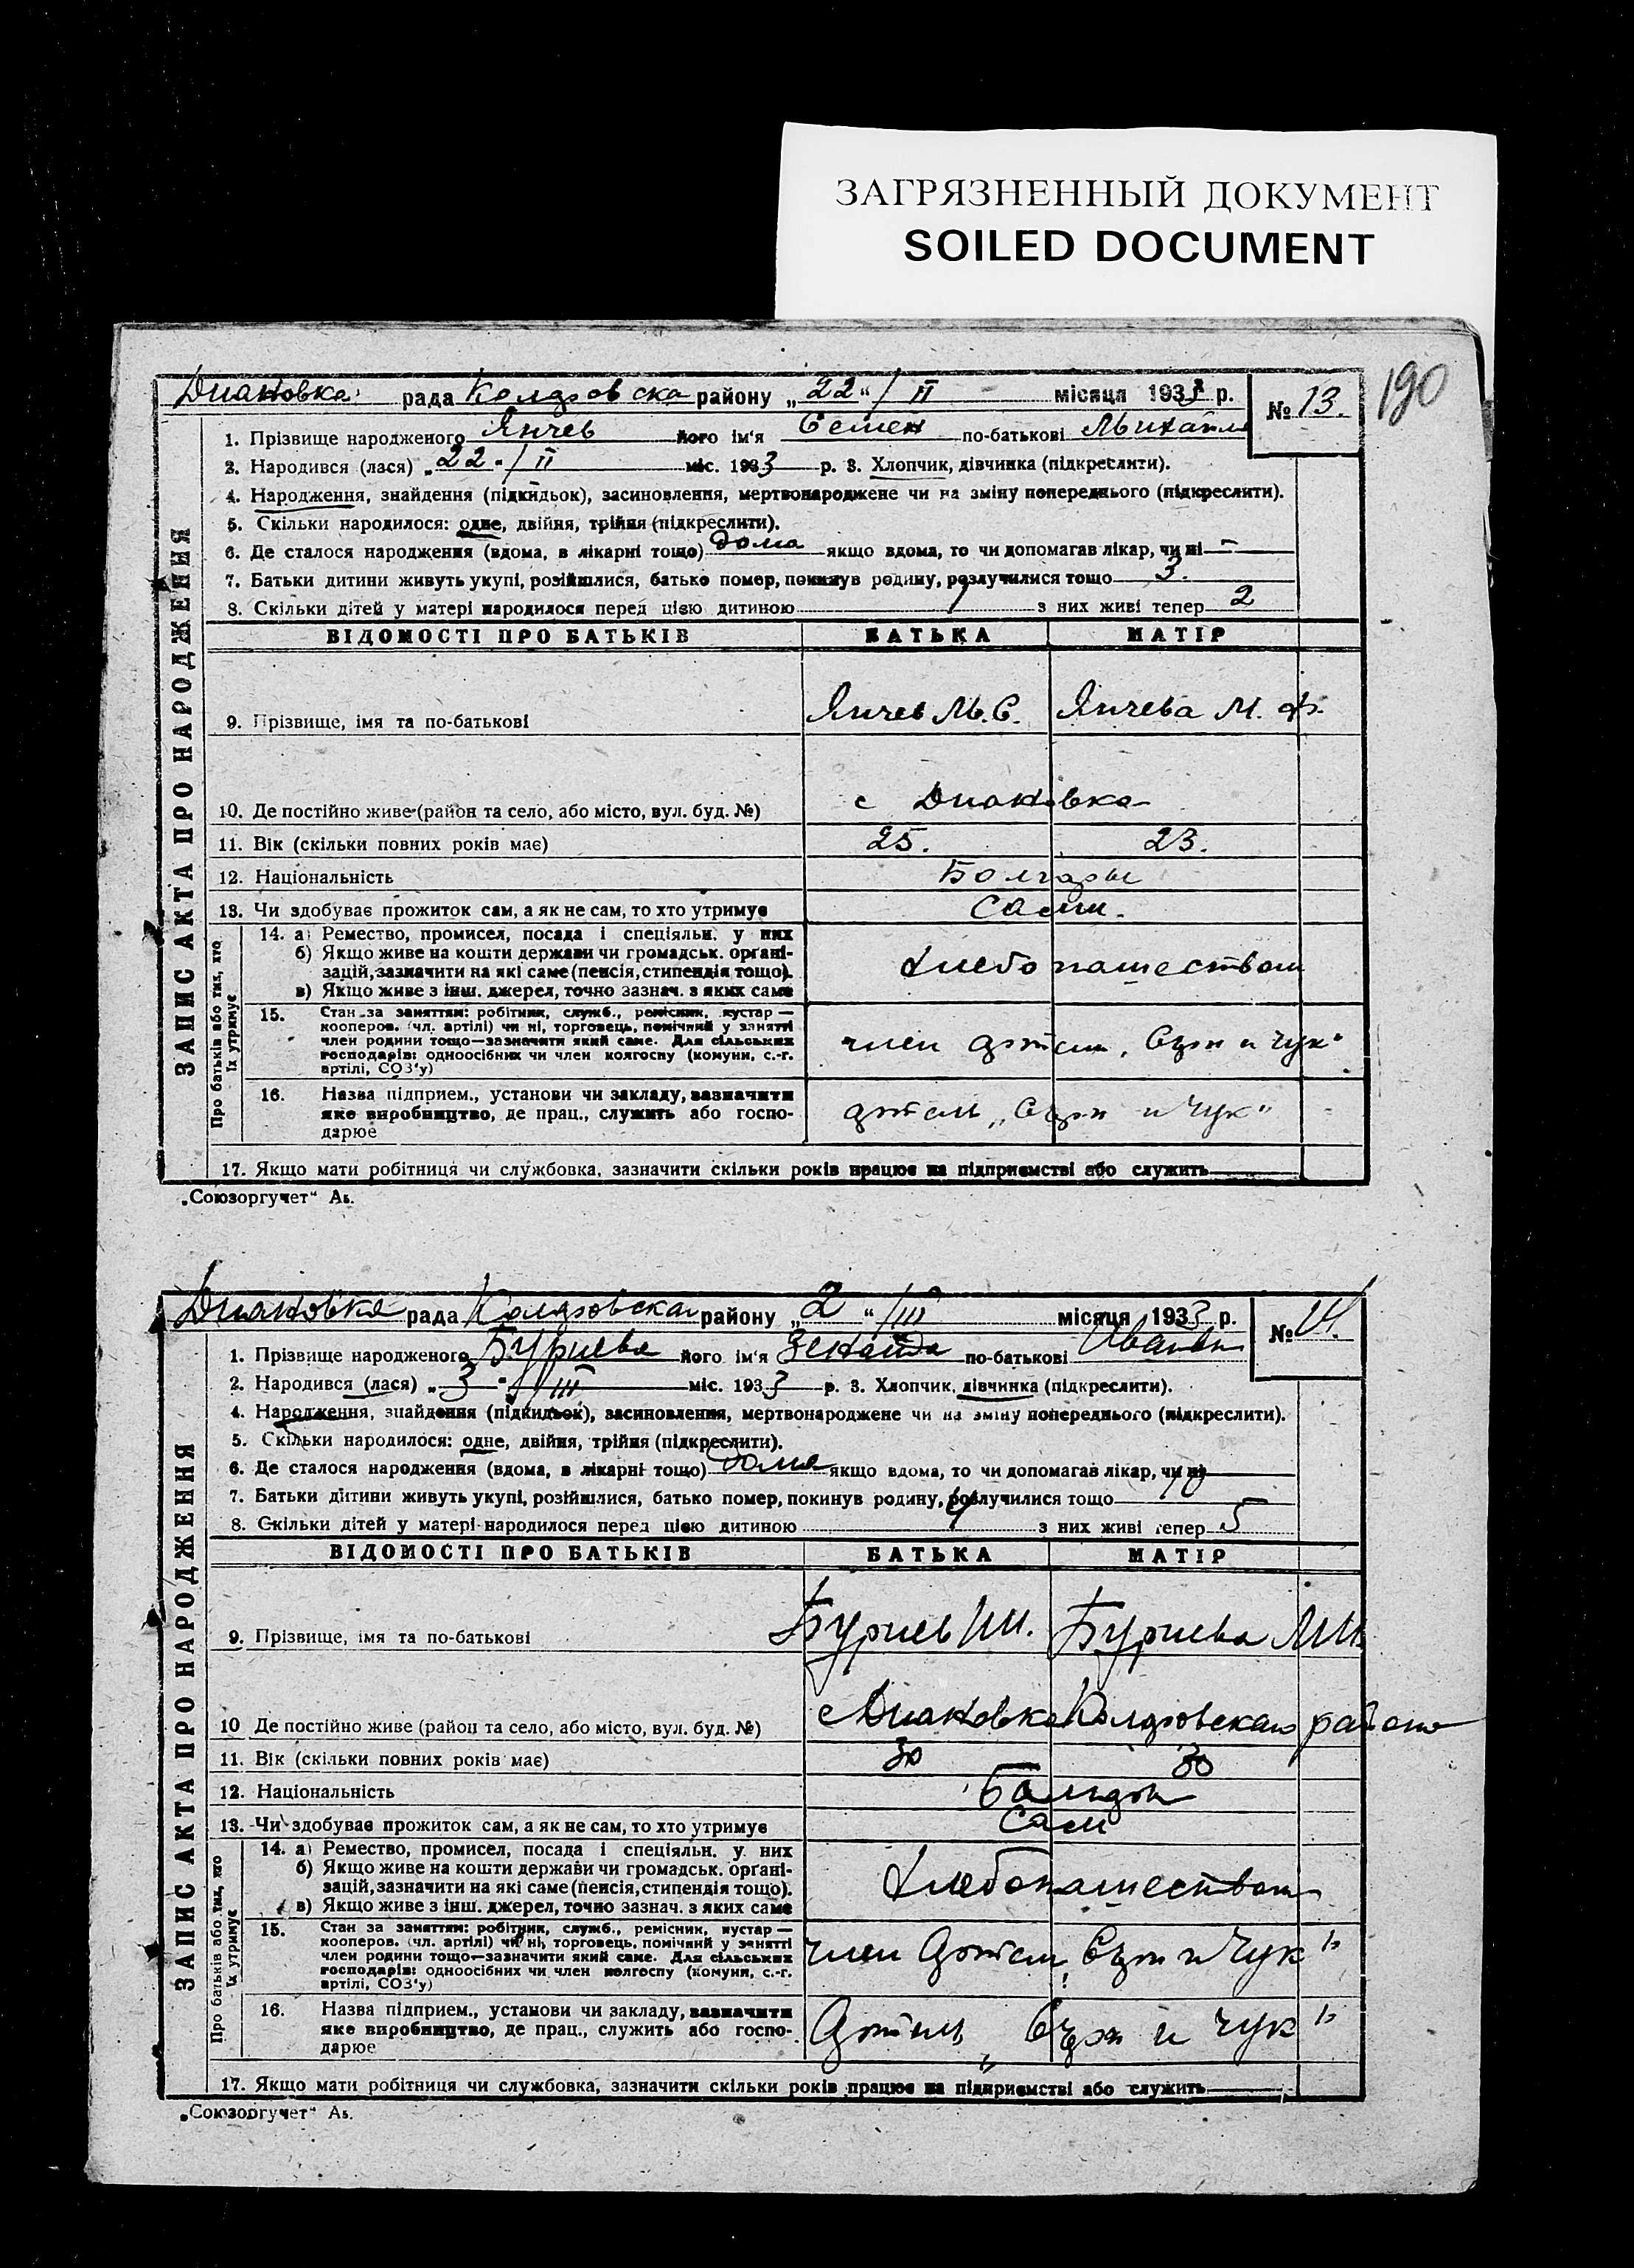 ЗАГРЯЗНЕННЫЙ ДОКУМЕНТ
SOILED DOCUMENT
190
Диановка рада района „22“/II місяця 1933 р. №13.
1. Прізвище народженого Янчев його ім'я Семен по-батькові Михайл
2. Народився (лася) „22“/II міс. 1933 р. 3. Хлопчик, дівчинка (підкреслити).
4. Народження, знайдення (підкидьок), засиновлення, мертвонароджене чи на зміну попереднього (підкреслити).
5. Скільки народилося: одне, двійня, трійня (підкреслити).
6. Де сталося народження (вдома, в лікарні тощо) дома якщо вдома, то чи допомагав лікар, чи ні —
7. Батьки дитини живуть укупі, розійшлися, батько помер, покинув родину, розлучилися тощо 3.
8. Скільки дітей у матері народилося перед цією дитиною 1 з них живі тепер 2
ЗАПИС АКТА ПРО НАРОДЖЕННЯ
ВІДОМОСТІ ПРО БАТЬКІВ БАТЬКА МАТІР
9. Прізвище, імя та по-батькові Янчев М.С. Янчева М. Ф.
10. Де постійно живе (район та село, або місто, вул. буд. №) с Диановка
11. Вік (скільки повних років має) 25. 23.
12. Національність Болгары
13. Чи здобуває прожиток сам, а як не сам, то хто утримує сами.
Про батьків або тих, хто їх утримує
14. а) Ремество, промисел, посада і спеціяльн. у них
б) Якщо живе на кошти держави чи громадськ. органі-
зацій, зазначити на які саме (пенсія, стипендія тощо).
в) Якщо живе з інш. джерел, точно зазнач. з яких саме
хлебопашеством
15. Стан за заняттям: робітник, служб., ремісник, кустар —
кооперов. (чл. артілі) чи ні, торговець, помічний у занятті
член родини тощо—зазначити який саме. Для сільських
господарів: одноосібник чи член колгоспу (комуни, с.-г.
артілі, СОЗ'у)
член артели „Сърп и Чук“
16. Назва підприєм., установи чи закладу, зазначити
яке виробництво, де прац., служить або госпо-
дарює
артель „Сърп и Чук“
17. Якщо мати робітниця чи службовка, зазначити скільки років працює на підприємстві або служить
„Союзоргучет“ Аз.
Диановка рада району „2“/III місяця 1933 р. №14.
1. Прізвище народженого його ім'я по-батькові Иванов
2. Народився (лася) „3“/III міс. 1933 р. 3. Хлопчик, дівчинка (підкреслити).
4. Народження, знайдення (підкидьок), засиновлення, мертвонароджене чи на зміну попереднього (підкреслити).
5. Скільки народилося: одне, двійня, трійня (підкреслити).
6. Де сталося народження (вдома, в лікарні тощо) дома якщо вдома, то чи допомагав лікар, чи ні
7. Батьки дитини живуть укупі, розійшлися, батько помер, покинув родину, розлучилися тощо
8. Скільки дітей у матері народилося перед цією дитиною 4 з них живі тепер 5
ЗАПИС АКТА ПРО НАРОДЖЕННЯ
ВІДОМОСТІ ПРО БАТЬКІВ БАТЬКА МАТІР
9. Прізвище, імя та по-батькові
10 Де постійно живе (район та село, або місто, вул. буд. №) с Диановка района
11. Вік (скільки повних років має) 30 30
12. Національність
13. Чи здобуває прожиток сам, а як не сам, то хто утримує сами
Про батьків або тих, хто їх утримує
14. а) Ремество, промисел, посада і спеціяльн. у них
б) Якщо живе на кошти держави чи громадськ. органі-
зацій, зазначити на які саме (пенсія, стипендія тощо).
в) Якщо живе з інш. джерел, точно зазнач. з яких саме
хлебопашеством
15. Стан за заняттям: робітник, служб., ремісник, кустар —
кооперов. (чл. артілі) чи ні, торговець, помічний у занятті
член родини тощо—зазначити який саме. Для сільських
господарів: одноосібник чи член колгоспу (комуни, с.-г.
артілі, СОЗ'у)
член артели „Сърп и Чук“
16. Назва підприєм., установи чи закладу, зазначити
яке виробництво, де прац., служить або госпо-
дарює
Артель „Сърп и Чук“
17. Якщо мати робітниця чи службовка, зазначити скільки років працює на підприємстві або служить
„Союзоргучет“ Аз.